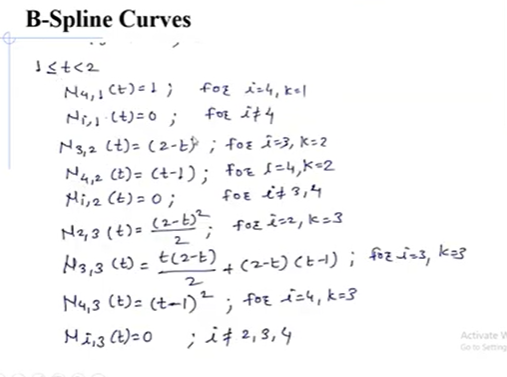 B-Spline Curves
1 ≤ t < 2
N4,1 (t) = 1 ; for i=4, k=1
Ni,1 (t) = 0 ; for i≠4
N3,2 (t) = (2-t) ; for i=3, k=2
N4,2 (t) = (t-1) ; for i=4, k=2
Ni,2 (t) = 0 ; for i≠3,4
N2,3 (t) = (2-t)²/2 ; for i=2, k=3
N3,3 (t) = t(2-t)/2 + (2-t)(t-1) ; for i=3, k=3
N4,3 (t) = (t-1)² ; for i=4, k=3
Ni,3 (t) = 0 ; i≠2,3,4
Activate
Go to Setting